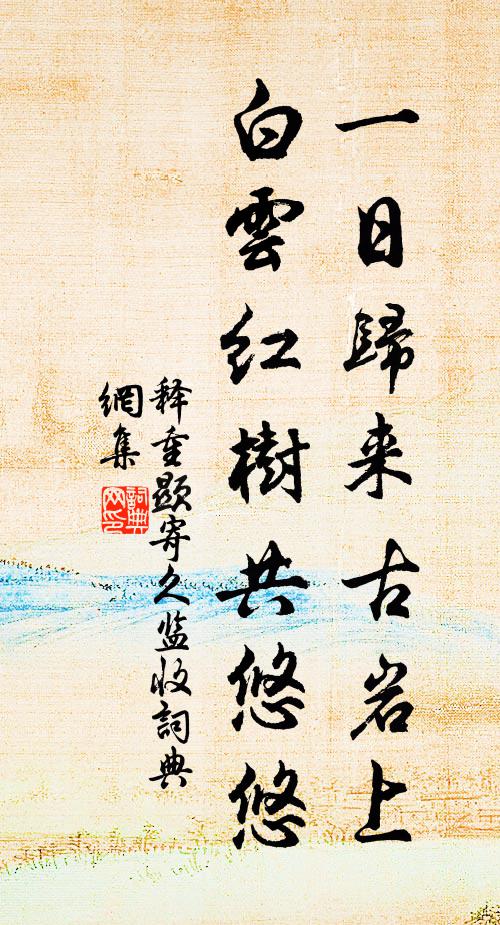 一日歸来古岩上
白雲红樹共悠悠
释重顯寄久监收詞典
網集
詞典网印